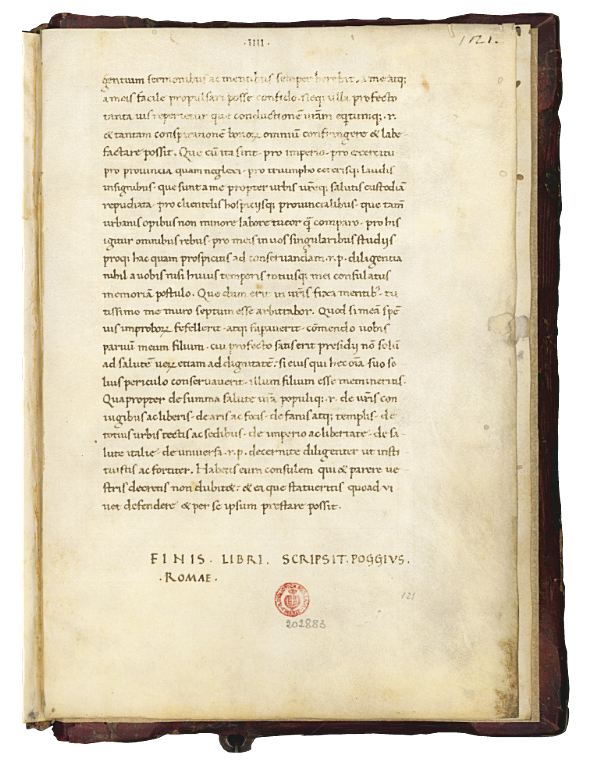 · IIII ·
121.
gentium sermonibus ac mentibus semper herebit. a me atq;
a meis facile propulsari posse confido. Neq; ulla profecto
tanta uis reperietur que coniunctionē uram equitumq; .r.
& tantam conspirationē bonorꝝ omniū confringere & labe
factare possit. Que cū ita sint · pro imperio · pro exercitu
pro prouincia quam neglexi · pro triumpho ceterisq; laudis
insignibus · que sunt a me propter urbis urēq; salutis custodiā
repudiata · pro clientelis hospitiisq; prouincialibus · que tam̄
urbanis opibus non minore labore tueor q̄ comparo · pro his
igitur omnibus rebus · pro meis in uos singularibus studiis
proq; hac quam prospicitis ad conseruandam .r.p. diligentia
nihil a uobis nisi huius temporis totiusq; mei consulatus
memoriā postulo. Que dum erit in uris fixa mentib; · tu
tissimo me muro septum esse arbitrabor. Quod si meā spē
uis improborꝝ fefellerit · atq; supauerit · cōmendo uobis
paruū meum filium · cui profecto satis erit presidii nō solū
ad salutē uerꝝ etiam ad dignitatē: si eius qui hec oīa suo so
lius periculo conseruauerit · illum filium esse memineritis.
Quapropter de summa salute ura populiq; .r. de uris con
iugibus ac liberis · de aris ac focis · de fanis atq; templis · de
totius urbis tectis ac sedibus · de imperio ac libertate · de sa
lute italie · de uniuersa .r.p. decernite diligenter ut insti
tuistis ac fortiter. Habetis eum consulem qui & parere ue
stris decretis non dubitet: & ea que statueritis quoad ui
uet defendere & per se ipsum prestare possit.
FINIS · LIBRI. SCRIPSIT. POGGIVS.
· ROMAE ·
121
202883